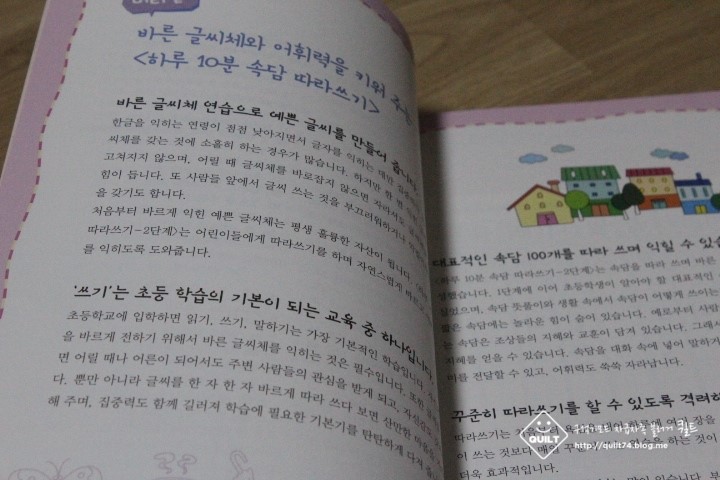 바른 글씨체와 어휘력을 키워 주는
<하루 10분 속담 따라쓰기>
바른 글씨체 연습으로 예쁜 글씨를 만들어 줍니다.
한글을 익히는 연령이 점점 낮아지면서 글자를 익히는 데만
씨체를 갖는 것에 소홀히 하는 경우가 많습니다. 하지만 한 번
고쳐지지 않으며, 어릴 때 글씨체를 바로잡지 않으면 자라서도
힘이 듭니다. 또 사람들 앞에서 글씨 쓰는 것을 부끄러워하거나
을 갖기도 합니다.
처음부터 바르게 익힌 예쁜 글씨체는 평생 훌륭한 자산이 됩니다.
따라쓰기-2단계>는 어린이들에게 따라쓰기를 하며 자연스럽게 바르고
를 익히도록 도와줍니다.
'쓰기'는 초등 학습의 기본이 되는 교육 중 하나입니다
초등학교에 입학하면 읽기, 쓰기, 말하기는 가장 기본적인 학습입니다.
을 바르게 전하기 위해서 바른 글씨체를 익히는 것은 필수입니다. 또한
면 어릴 때나 어른이 되어서도 주변 사람들의 관심을 받게 되고, 자신감도
다. 뿐만 아니라 글씨를 한 자 한 자 바르게 따라 쓰다 보면 산만한 마음을
해 주며, 집중력도 함께 길러져 학습에 필요한 기본기를 탄탄하게 다져
대표적인 속담 100개를 따라 쓰며 익힐 수 있습
<하루 10분 속담 따라쓰기-2단계>는 속담을 따라 쓰며 바른
성했습니다. 1단계에 이어 초등학생이 알아야 할 대표적인
실었으며, 속담 뜻풀이와 생활 속에서 속담이 어떻게 쓰이는
짧은 속담에는 놀라운 힘이 숨어 있습니다. 예로부터 사람
는 속담은 조상들의 지혜와 교훈이 담겨 있습니다. 그래서
지혜를 얻을 수 있습니다. 속담을 대화 속에 넣어 말하거
이를 전달할 수 있고, 어휘력도 쑥쑥 자라납니다.
꾸준히 따라쓰기를 할 수 있도록 격려해
따라쓰기는
이 쓰는 것보다 매일 꾸준히
더욱 효과적입니다.
QUILT
http://quilt74.blog.me